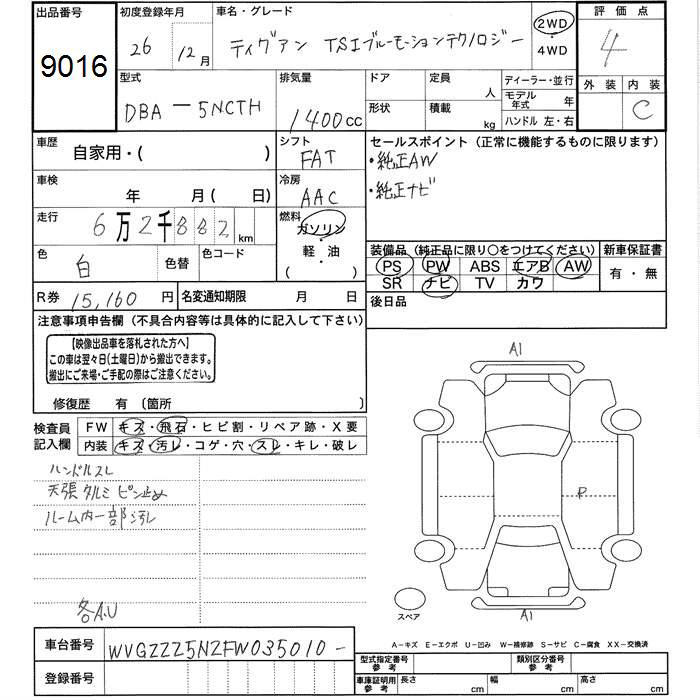 出品番号 初度登録年月 車名・グレード 評価点
9016 26 12月 ティグアン TSIブルーモーションテクノロジー 2WD・4WD 4
型式 排気量 ドア 定員 人 ディーラー・並行 外装 内装
DBA-5NCTH 1400cc 形状 積載 kg モデル年式 年 C
ハンドル 左・右
車歴 自家用・( ) シフト FAT セールスポイント (正常に機能するものに限ります)
・純正AW
車検 年 月( 日) 冷房 AAC ・純正ナビ
走行 6万2千882km 燃料 ガソリン・軽・油 ( )
色 白 色替 色コード 装備品 (純正品に限り○をつけてください) 新車保証書
PS PW ABS エアB AW 有・無
SR ナビ TV カワ
R券 15,160円 名変通知期限 月 日 後日品
注意事項申告欄 (不具合内容等は具体的に記入して下さい)
【映像出品車を落札された方へ】
この車は翌々日(土曜日)から搬出できます。
搬出にご来場・ご手配の際はご注意ください。
修復歴 有 (箇所 )
検査員記入欄 FW キズ・飛石・ヒビ割・リペア跡・X要
内装 キズ・汚レ・コゲ・穴・スレ・キレ・破レ
ハンドルスレ
天張タルミピン止め
ルーム内一部汚レ
各A.U
A1
P
A1
スペア
A-キズ E-エクボ U-凹み W-補修跡 S-サビ C-腐食 XX-交換済
車台番号 WVGZZZ5NZFW035010-
登録番号
型式指定番号参考 類別区分番号参考
車庫証明用参考 長さ cm 幅 cm 高さ cm